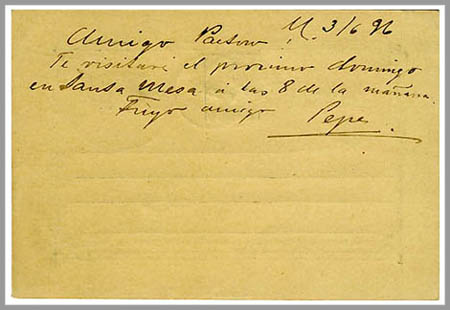 Amigo Pastor M. 3/6 96
Te visitaré el proximo domingo
en Santa Mesa á las 8 de la mañana.
Tuyo amigo Pepe.